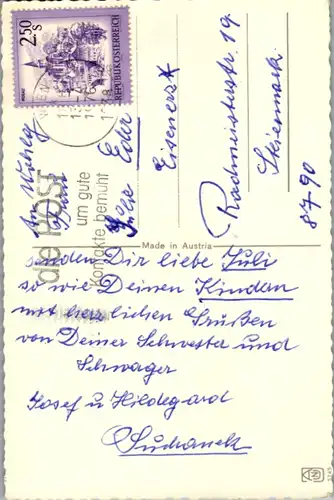 2.50 S
REPUBLIK ÖSTERREICH
die POST
um gute
Kontakte bemüht
Julie Eder
Eisenerz
Radmeisterstr. 19
Steiermark
8790
Made in Austria
senden Dir liebe Juli
so wie Deinen Kindern
mit herzlichen Grüßen
von Deiner Schwester und
Schwager
Josef u Hildegard
Suchanek